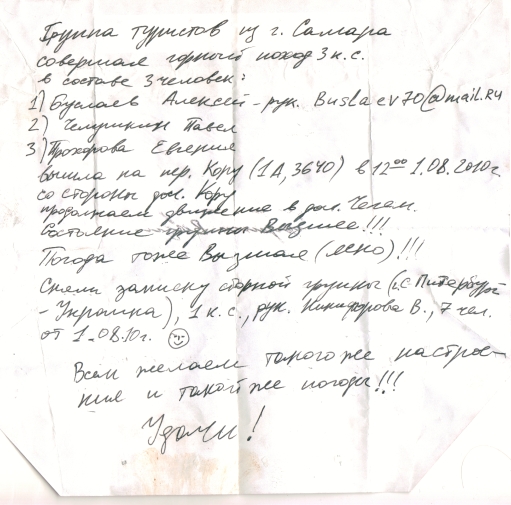 Группа туристов из г. Самара
совершая горный поход 3 к.с.
в составе 3 человек:
1) Буслаев Алексей - рук. Buslaev70@mail.ru
2) Павел
3) Прохорова Евгения
вышла на пер. Кору (1А, 3640) в 12⁰⁰ 1.08.2010г.
со стороны дол. Кору
продолжаем движение в дол. Чегем.
Состояние группы Высшее!!!
Погода тоже (ясно)!!!
Сняли записку сборной группы (г.С Питербург
- Украина), 1 к.с., рук. Никифорова В., 7 чел.
от 1.08.10г.
Всем желаем такого же настрое-
ния и такой же погоды!!!
Удачи!